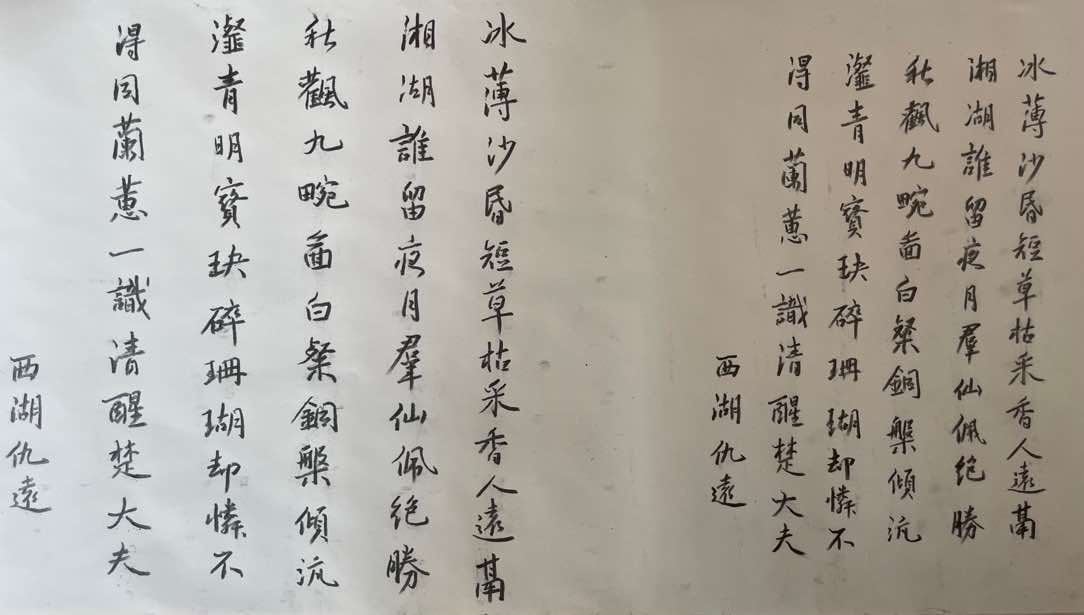 冰薄沙昏短草枯采香人遠鬲
湘湖誰留夜月羣仙佩絕勝
秋飌九畹啚白粲銅槃傾沆
瀣青明寶玦碎珊瑚却憐不
得同蘭蕙一識清醒楚大夫
西湖仇遠
冰薄沙昏短草枯采香人遠鬲
湘湖誰留夜月羣仙佩絕勝
秋飌九畹啚白粲銅槃傾沆
瀣青明寶玦碎珊瑚却憐不
得同蘭蕙一識清醒楚大夫
西湖仇遠